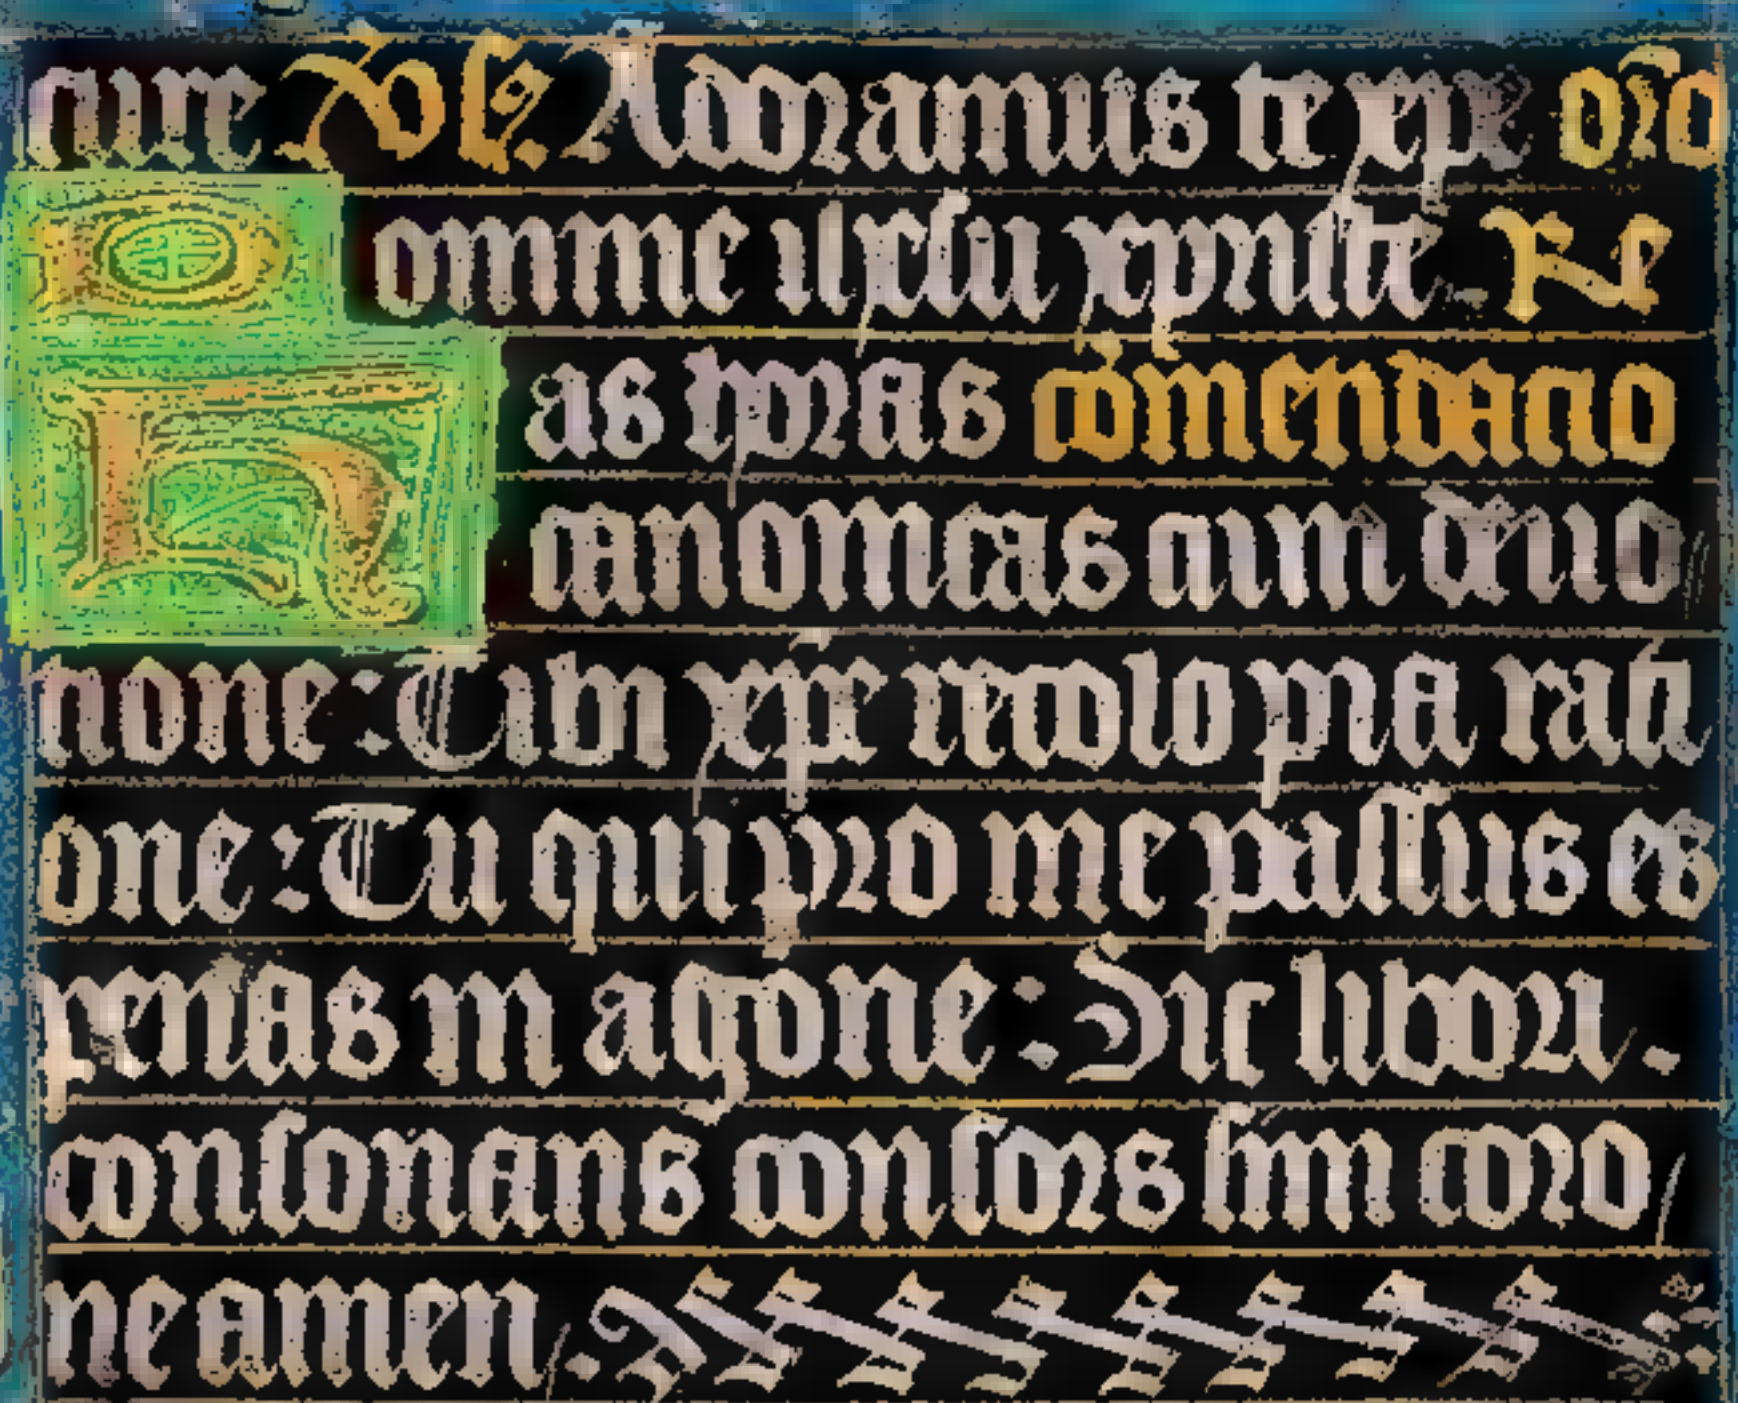 ture vs. Adoramus te xpe oro
Domine ih'u xpriste. Re
Has horas comendacio
canonicas cum deuo
cione: Tibi xpe recolo pia rati
one: Tu qui pro me passus es
penas in agone: Sic labori.
consonans consors sim coro
ne amen.